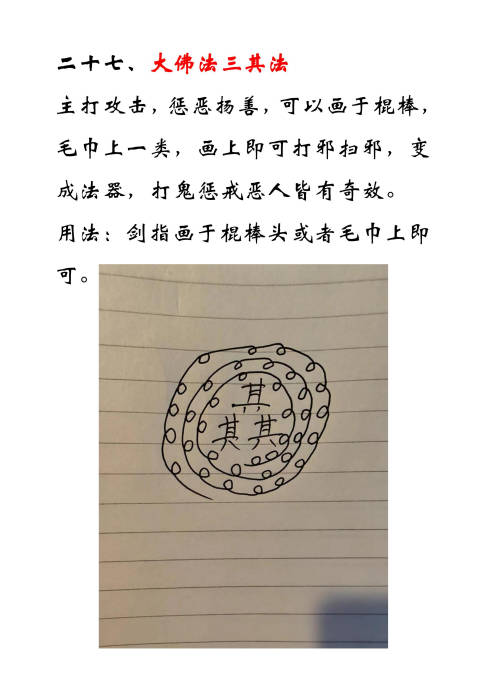 二十七、大佛法三其法
主打攻击，惩恶扬善，可以画于棍棒，
毛巾上一类，画上即可打邪扫邪，变
成法器，打鬼惩戒恶人皆有奇效。
用法：剑指画于棍棒头或者毛巾上即
可。
其
其其